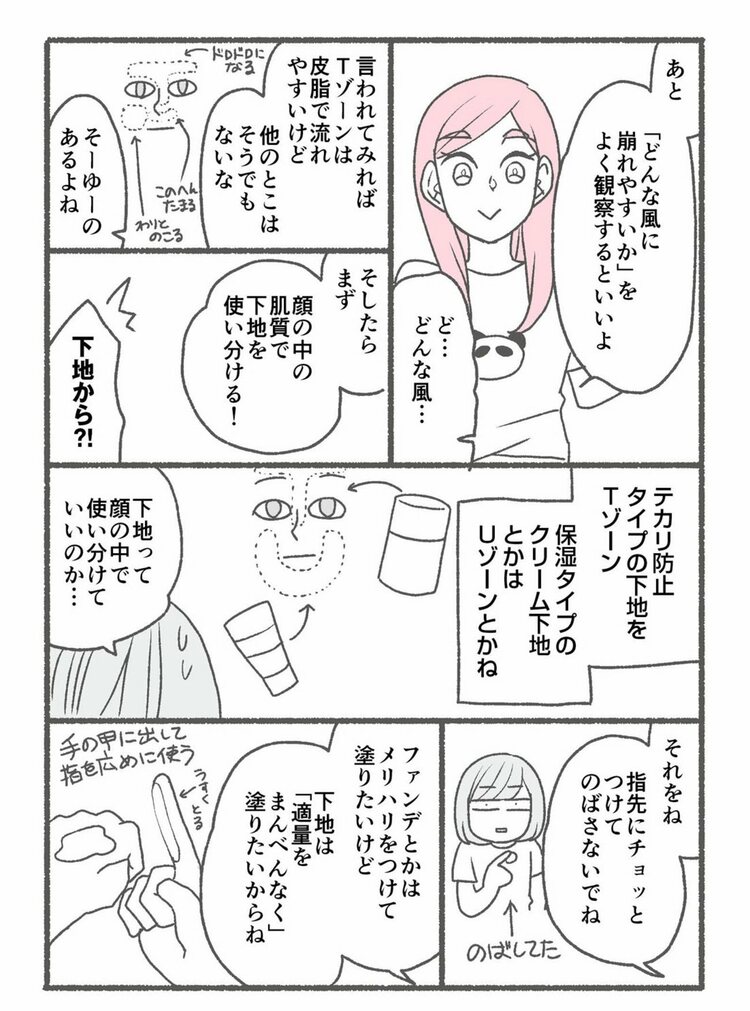 あと
「どんな風に
崩れやすいか」を
よく観察するといいよ
ど…
どんな風…
言われてみれば
Tゾーンは
皮脂で流れ
やすいけど
他のとこは
そうでも
ないな
ドロドロに
なる
このへん
たまる
わりと
のこる
そーゆーの
あるよね
そしたら
まず
顔の中の
肌質で
下地を
使い分ける!
下地から?!
テカリ防止
タイプの下地を
Tゾーン
保湿タイプの
クリーム下地
とかは
Uゾーンとかね
下地って
顔の中で
使い分けて
いいのか…
それをね
指先にチョッと
つけて
のばさないでね
のばしてた
ファンデとかは
メリハリをつけて
塗りたいけど
下地は
「適量を
まんべんなく」
塗りたいからね
手の甲に出して
指を広めに使う
うすく
とる